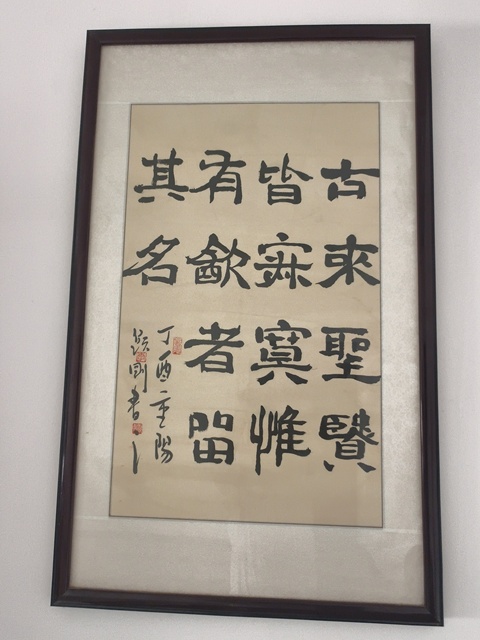 古來聖賢
皆寂寞惟
有飲者留
其名
丁酉重陽
剛書